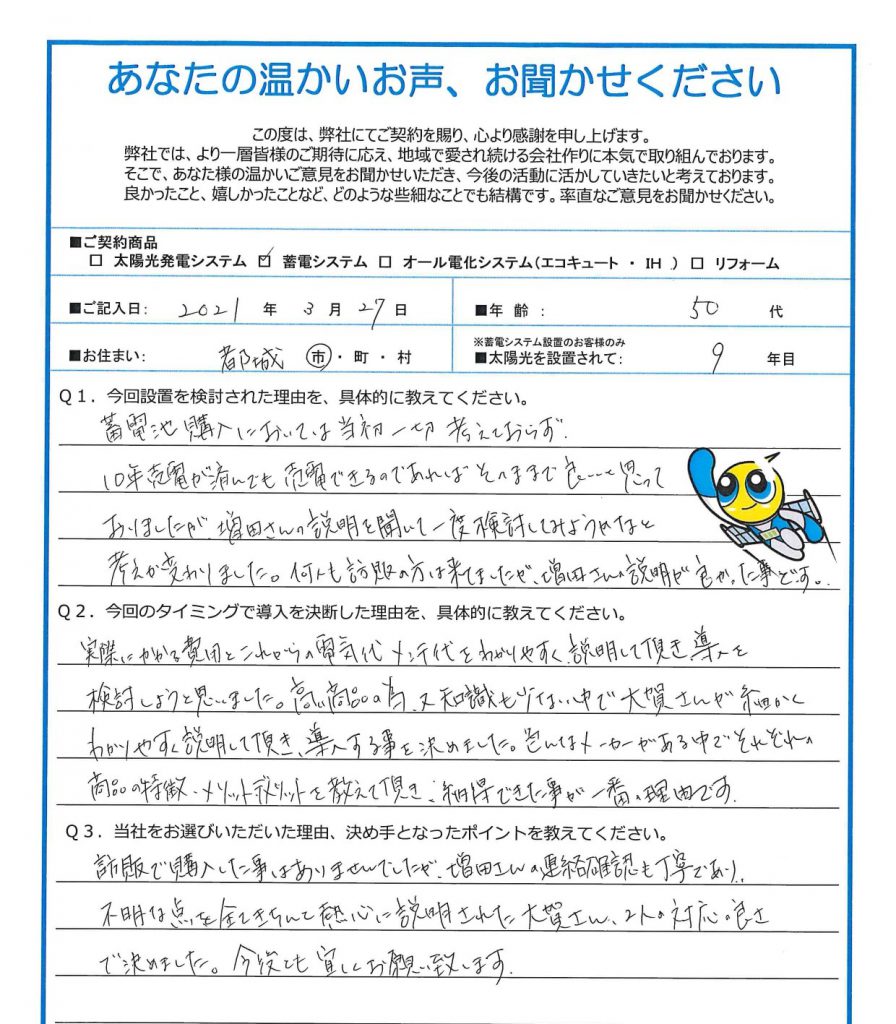 あなたの温かいお声、お聞かせください
この度は、弊社にてご契約を賜り、心より感謝を申し上げます。
弊社では、より一層皆様のご期待に応え、地域で愛され続ける会社作りに本気で取り組んでおります。
そこで、あなた様の温かいご意見をお聞かせいただき、今後の活動に活かしていきたいと考えております。
良かったこと、嬉しかったことなど、どのような些細なことでも結構です。率直なご意見をお聞かせください。
■ご契約商品
□ 太陽光発電システム ☑ 蓄電システム □ オール電化システム(エコキュート ・ IH ) □ リフォーム
■ご記入日: 2021 年 3 月 27 日 ■年 齢 : 50 代
※蓄電システム設置のお客様のみ
■お住まい: 都城 �political市・町・村 ■太陽光を設置されて: 9 年目
Q1. 今回設置を検討された理由を、具体的に教えてください。
蓄電池購入においては当初一切考えておらず.
10年売電が済んでも売電できるのであればそのままで良いと思って
おりましたが、増田さんの説明を聞いて一度検討してみようかなと
考えが変わりました。何人も訪販の方は来てましたが、増田さんの説明が良かった事です。
Q2. 今回のタイミングで導入を決断した理由を、具体的に教えてください。
実際にかかる費用とこれからの電気代メンテ代をわかりやすく説明して頂き導入を
検討しようと思いました。高い商品の為、又知識も少ない中で大賀さんが細かく
わかりやすく説明して頂き、導入する事を決めました。色んなメーカーがある中でそれぞれの
商品の特徴・メリットデメリットを教えて頂き、納得できた事が一番の理由です.
Q3. 当社をお選びいただいた理由、決め手となったポイントを教えてください。
訪販で購入した事はありませんでしたが、増田さんの連絡確認も丁寧であり、
不明な点を全てきちんと熱心に説明された大賀さん、2人の対応の良さ
で決めました。今後とも宜しくお願い致します.